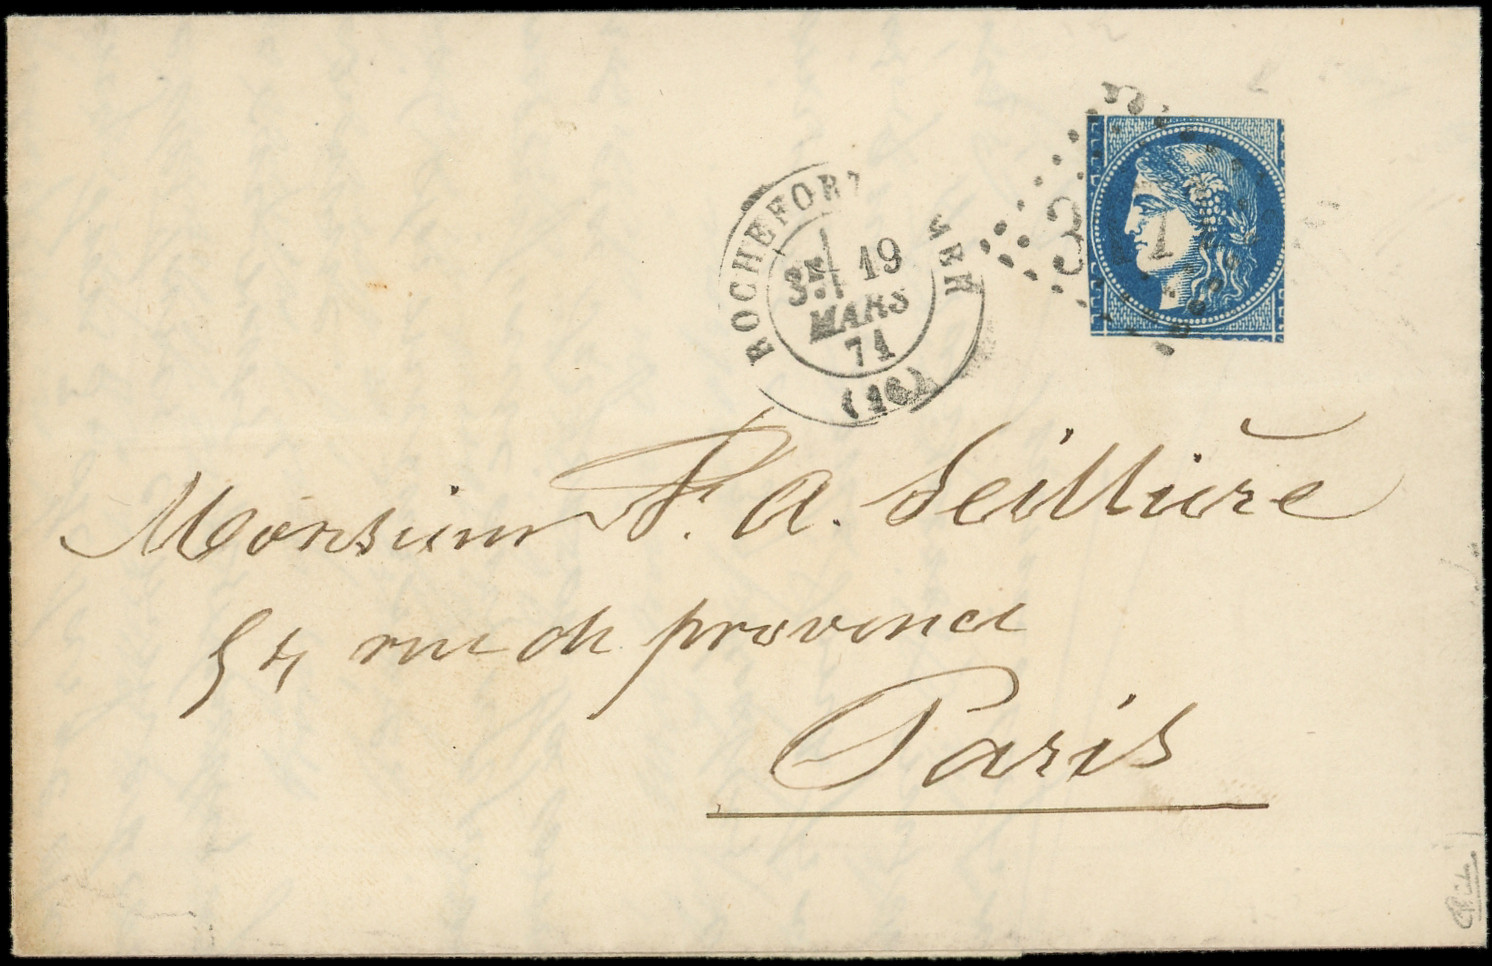 ROCHEFORT MER
3E 19
MARS
71
(16)
3 1
Monsieur F. A. Seillière
54 rue de provence
Paris